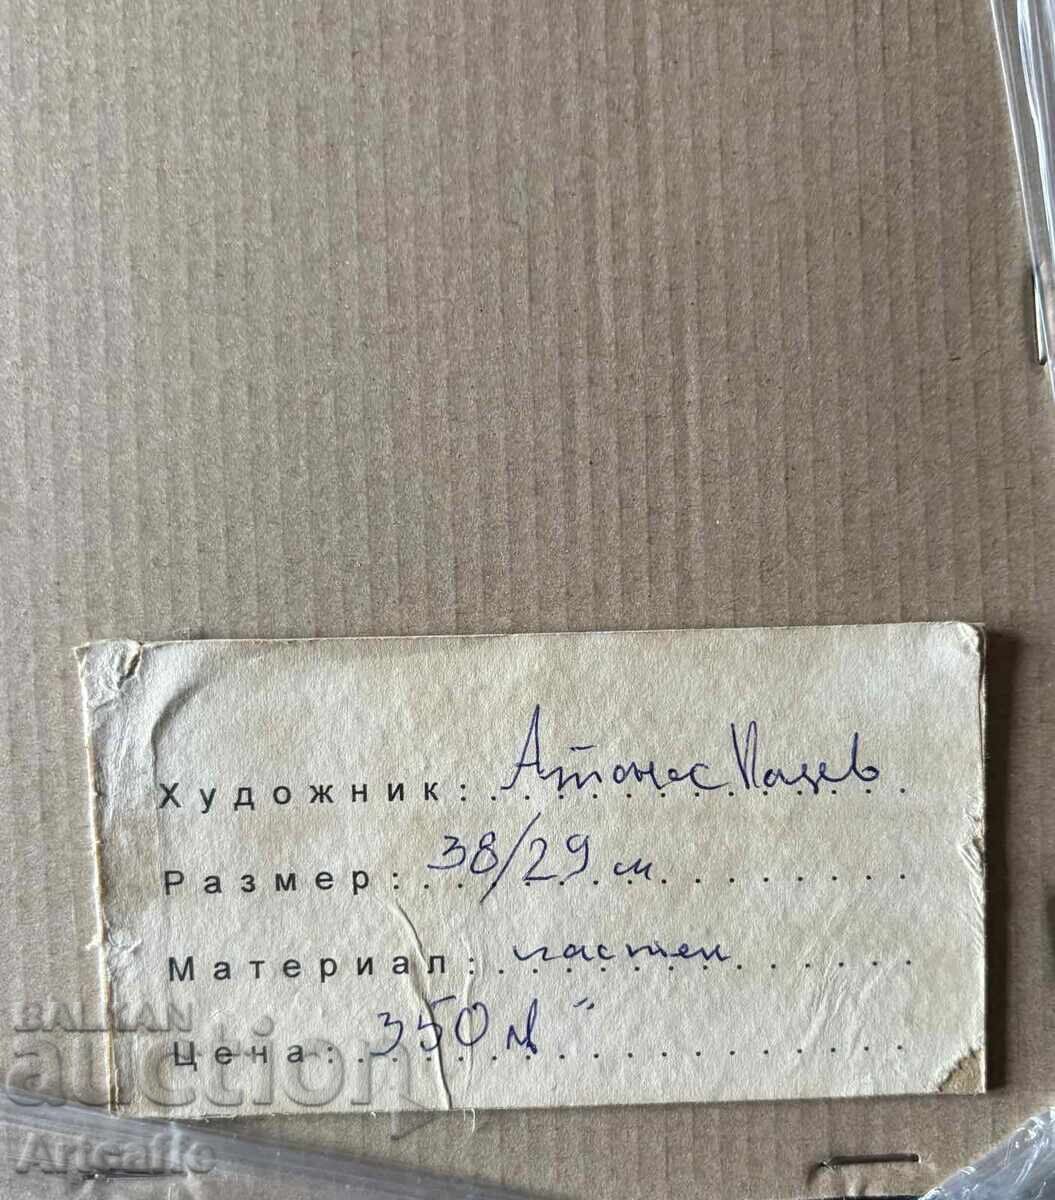 Художник: Атанас Пацев
Размер: 38/29 см
Материал: пастел
Цена: 350 лв
BALKAN
auction
Artcaffe